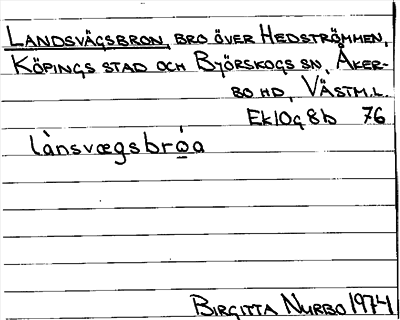 LANDSVÄGSBRON, BRO ÖVER HEDSTRÖMMEN,
KÖPINGS STAD OCH BJÖRSKOGS SN, ÅKER-
BO HD, VÄSTM.L.
Ek10g8b 76
lànsvægsbrǫ́a
BIRGITTA NURBO 1974